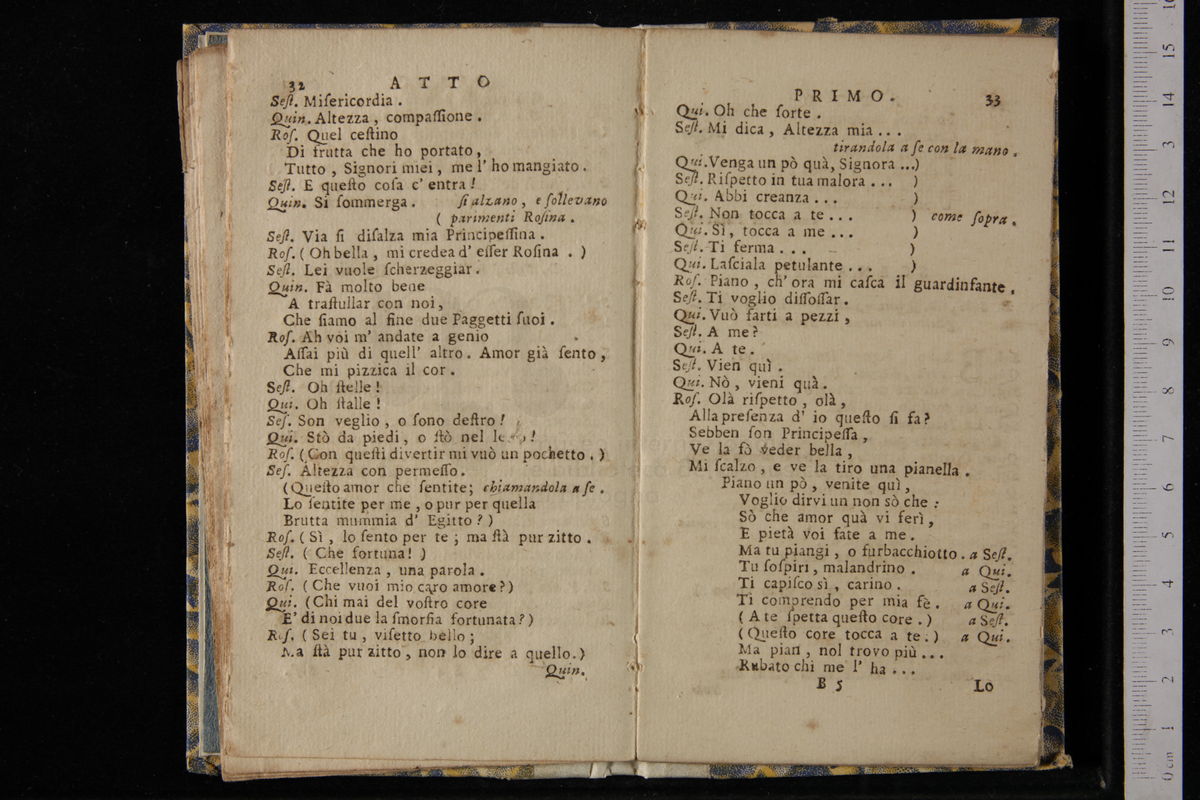 32 ATTO
Seſt. Miſericordia .
Quin. Altezza , compaſſione .
Roſ. Quel ceſtino
Di frutta che ho portato ,
Tutto , Signori miei , me l' ho mangiato .
Seſt. E queſto coſa c' entra !
Quin. Si ſommerga . ſi alzano , e ſollevano
( parimenti Roſina .
Seſt. Via ſi diſalza mia Principeſſina .
Roſ. ( Oh bella , mi credea d' eſſer Roſina . )
Seſt. Lei vuole ſcherzeggiar .
Quin. Fà molto bene
A traſtullar con noi ,
Che ſiamo al fine due Paggetti ſuoi .
Roſ. Ah voi m' andate a genio
Aſſai più di quell' altro . Amor già ſento ,
Che mi pizzica il cor .
Seſt. Oh ſtelle !
Qui. Oh ſtalle !
Seſ. Son veglio , o ſono deſtro !
Qui. Stò da piedi , o ſtò nel !
Roſ. ( Con queſti divertir mi vuò un pochetto . )
Seſ. Altezza con permeſſo .
( Queſto amor che ſentite ; chiamandola a ſe .
Lo ſentite per me , o pur per quella
Brutta mummia d' Egitto ? )
Roſ. ( Sì , lo ſento per te ; ma ſtà pur zitto .
Seſt. ( Che fortuna ! )
Qui. Eccellenza , una parola .
Roſ. ( Che vuoi mio caro amore ? )
Qui. ( Chi mai del voſtro core
E' di noi due la ſmorfia fortunata ? )
Roſ. ( Sei tu , viſetto bello ;
Ma ſtà pur zitto , non lo dire a quello . )
Quin.
PRIMO. 33
Qui. Oh che ſorte .
Seſt. Mi dica , Altezza mia . . .
tirandola a ſe con la mano .
Qui. Venga un pò quà , Signora . . . )
Seſt. Riſpetto in tua malora . . . )
Qui. Abbi creanza . . . )
Seſt. Non tocca a te . . . ) come ſopra .
Qui. Sì , tocca a me . . . )
Seſt. Ti ferma . . . )
Qui. Laſciala petulante . . . )
Roſ. Piano , ch' ora mi caſca il guardinfante .
Seſt. Ti voglio diſſoſſar .
Qui. Vuò farti a pezzi ,
Seſt. A me ?
Qui. A te .
Seſt. Vien quì .
Qui. Nò , vieni quà .
Roſ. Olà riſpetto , olà ,
Alla preſenza d' io queſto ſi fa ?
Sebben ſon Principeſſa ,
Ve la fò veder bella ,
Mi ſcalzo , e ve la tiro una pianella .
Piano un pò , venite quì ,
Voglio dirvi un non sò che :
Sò che amor quà vi ferì ,
E pietà voi fate a me .
Ma tu piangi , o furbacchiotto . a Seſt.
Tu ſoſpiri , malandrino . a Qui.
Ti capiſco sì , carino . a Seſt.
Ti comprendo per mia fè . a Qui.
( A te ſpetta queſto core . ) a Seſt.
( Queſto core tocca a te . ) a Qui.
Ma pian , nol trovo più . . .
Rubato chi me l' ha . . .
B 5 Lo
0 cm 1 2 3 4 5 6 7 8 9 10 11 12 13 14 15 16